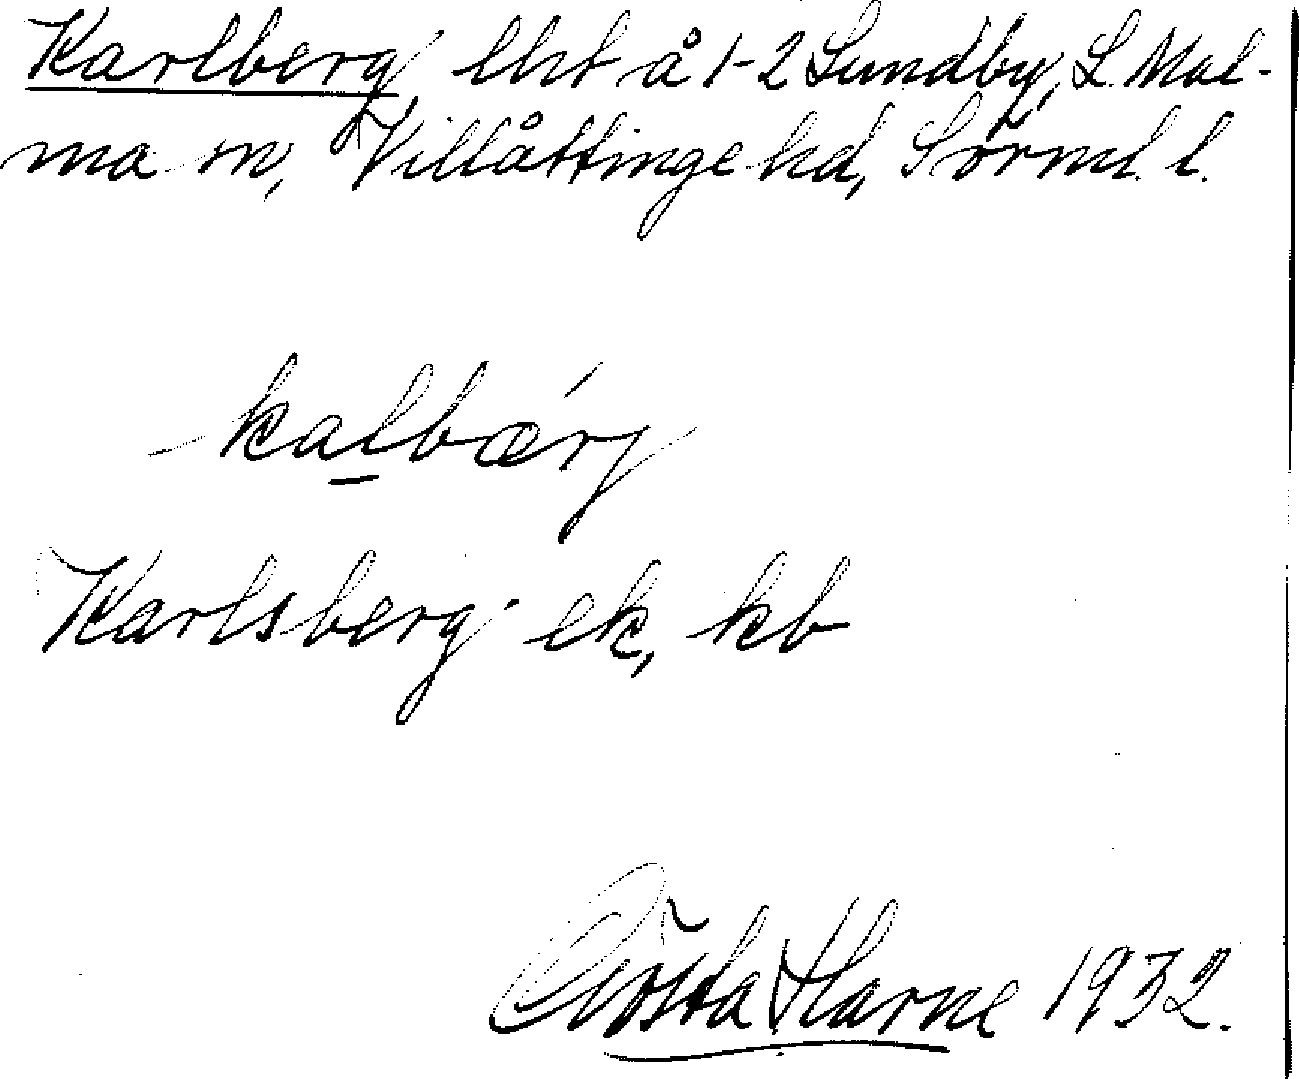 Karlberg, lht å 1-2 Sundby, L. Mal-
ma sn, Villåttinge hd, Sörml. l.
kalbærj
Karlsberg ek, kb
Gösta Harne 1932.